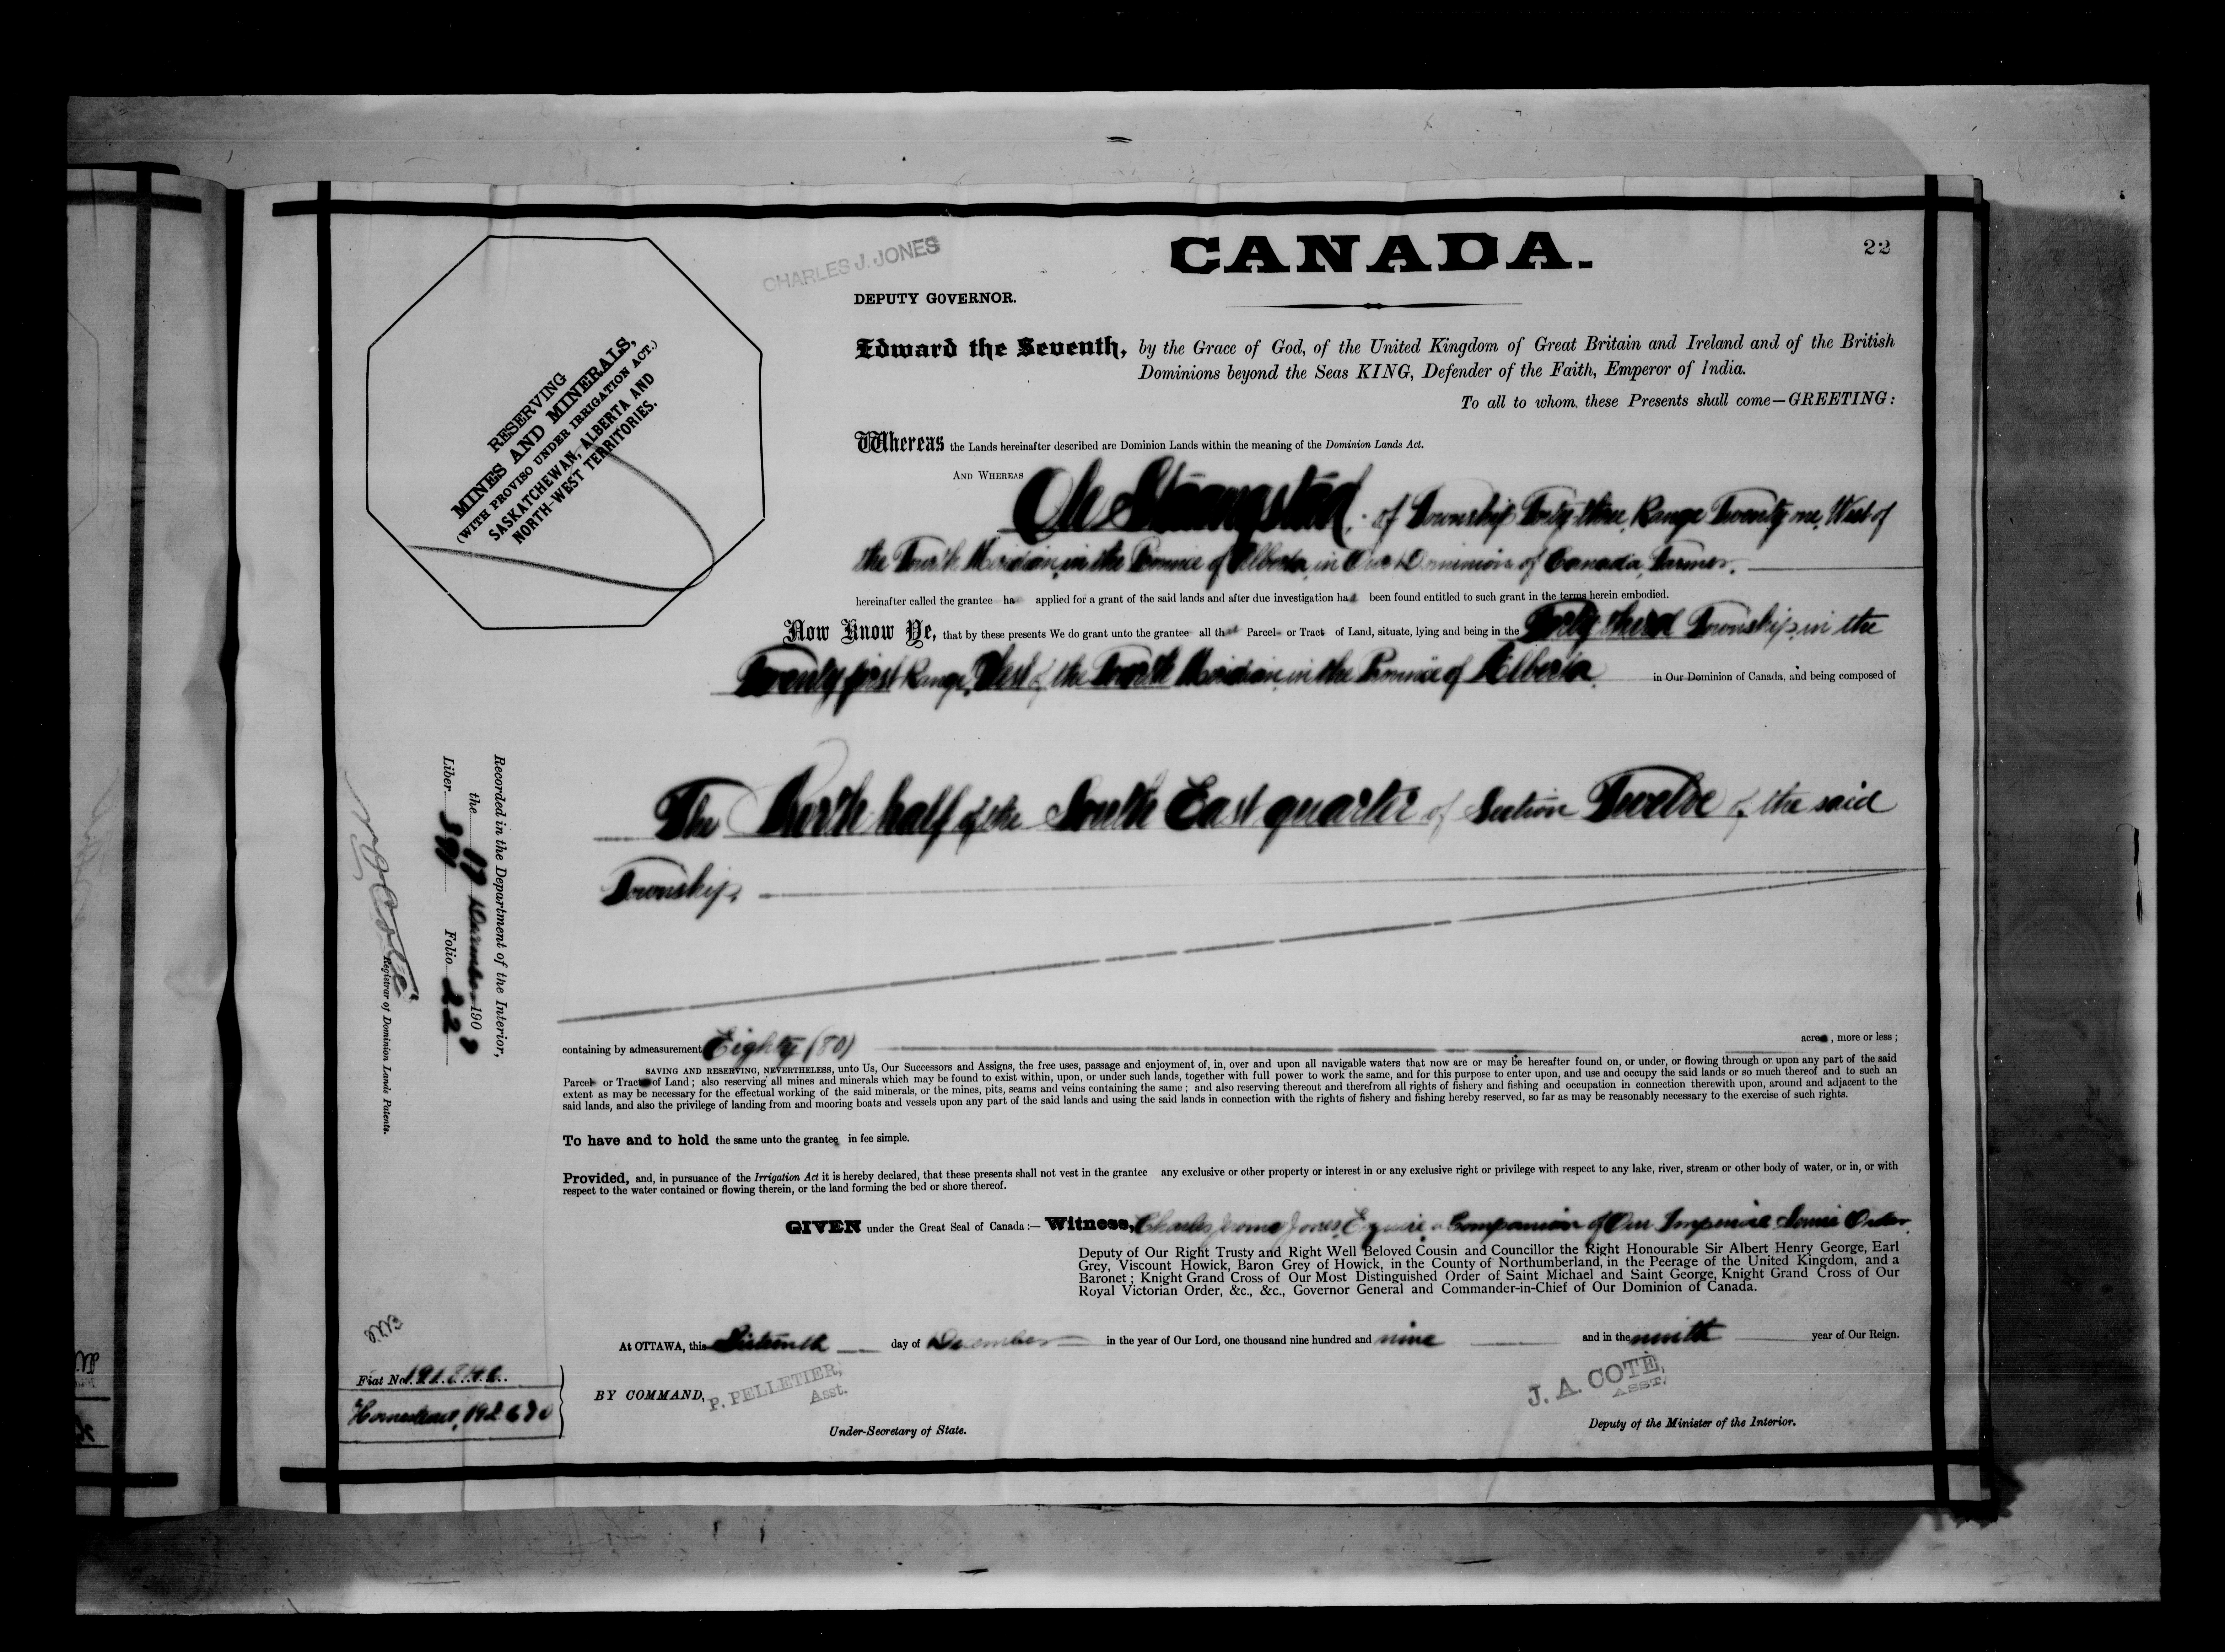 CANADA.
22
CHARLES J. JONES
DEPUTY GOVERNOR.
Edward the Seventh, by the Grace of God, of the United Kingdom of Great Britain and Ireland and of the British
Dominions beyond the Seas KING, Defender of the Faith, Emperor of India.
To all to whom these Presents shall come—GREETING:
RESERVING
MINES AND MINERALS,
(WITH PROVISO UNDER IRRIGATION ACT.)
SASKATCHEWAN, ALBERTA AND
NORTH-WEST TERRITORIES.
Whereas the Lands hereinafter described are Dominion Lands within the meaning of the Dominion Lands Act.
AND WHEREAS of Township Forty three, Range Twenty one, West of
the Fourth Meridian, in the Province of Alberta, in Our Dominion of Canada, Farmer.
hereinafter called the grantee ha applied for a grant of the said lands and after due investigation has been found entitled to such grant in the terms herein embodied.
Now Know Ye, that by these presents We do grant unto the grantee all that Parcel or Tract of Land, situate, lying and being in the Forty third Township, in the
Twenty first Range, West of the Fourth Meridian, in the Province of Alberta in Our Dominion of Canada, and being composed of
The North half of the South East quarter of Section Twelve of the said
Township,
containing by admeasurement Eighty (80) acres, more or less;
SAVING AND RESERVING, NEVERTHELESS, unto Us, Our Successors and Assigns, the free uses, passage and enjoyment of, in, over and upon all navigable waters that now are or may be hereafter found on, or under, or flowing through or upon any part of the said
Parcel or Tract of Land; also reserving all mines and minerals which may be found to exist within, upon, or under such lands, together with full power to work the same, and for this purpose to enter upon, and use and occupy the said lands or so much thereof and to such an
extent as may be necessary for the effectual working of the said minerals, or the mines, pits, seams and veins containing the same; and also reserving thereout and therefrom all rights of fishery and fishing and occupation in connection therewith upon, around and adjacent to the
said lands, and also the privilege of landing from and mooring boats and vessels upon any part of the said lands and using the said lands in connection with the rights of fishery and fishing hereby reserved, so far as may be reasonably necessary to the exercise of such rights.
To have and to hold the same unto the grantee in fee simple.
Provided, and, in pursuance of the Irrigation Act it is hereby declared, that these presents shall not vest in the grantee any exclusive or other property or interest in or any exclusive right or privilege with respect to any lake, river, stream or other body of water, or in, or with
respect to the water contained or flowing therein, or the land forming the bed or shore thereof.
GIVEN under the Great Seal of Canada:— Witness, Charles Jerome Jones, Esquire, a Companion of Our Imperial Service Order,
Deputy of Our Right Trusty and Right Well Beloved Cousin and Councillor the Right Honourable Sir Albert Henry George, Earl
Grey, Viscount Howick, Baron Grey of Howick, in the County of Northumberland, in the Peerage of the United Kingdom, and a
Baronet; Knight Grand Cross of Our Most Distinguished Order of Saint Michael and Saint George, Knight Grand Cross of Our
Royal Victorian Order, &c., &c., Governor General and Commander-in-Chief of Our Dominion of Canada.
At OTTAWA, this Sixteenth day of December in the year of Our Lord, one thousand nine hundred and nine and in the ninth year of Our Reign.
BY COMMAND, P. PELLETIER,
Asst.
Under-Secretary of State.
J. A. COTÉ,
ASST.
Deputy of the Minister of the Interior.
Recorded in the Department of the Interior,
the 17 December 1909
Liber Folio 22
N O Coté
Registrar of Dominion Lands Patents.
Fiat No.
Homestead,